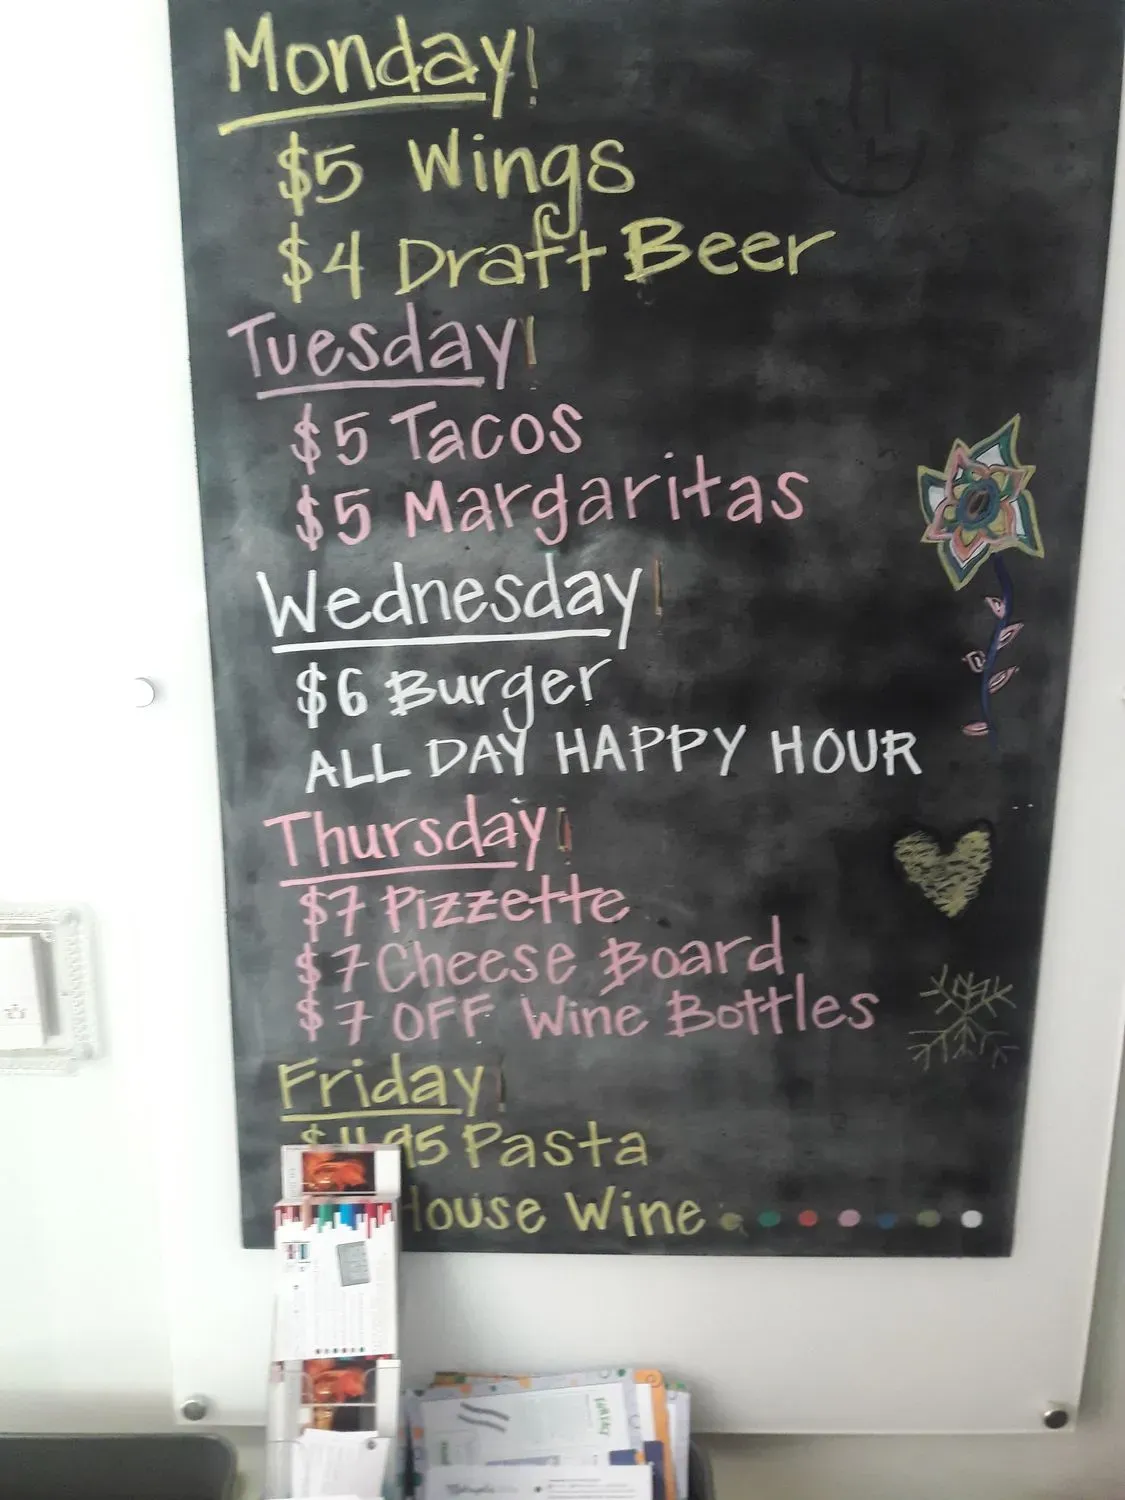 Monday!
$5 Wings
$4 Draft Beer
Tuesday!
$5 Tacos
$5 Margaritas
Wednesday!
$6 Burger
ALL DAY HAPPY HOUR
Thursday!
$7 Pizzette
$7 Cheese Board
$7 OFF Wine Bottles
Friday!
Pasta
House Wine